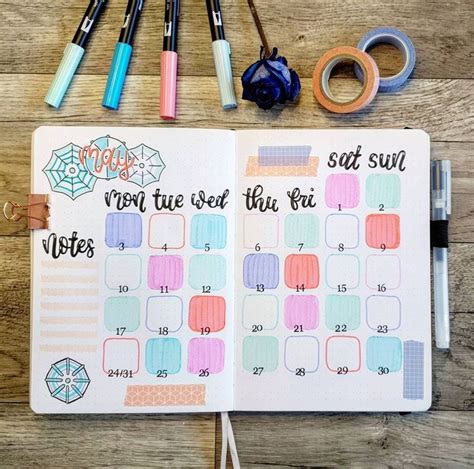 may
mon tue wed thu fri sat sun
Notes
1 2
3 4 5 6 7 8 9
10 11 12 13 14 15 16
17 18 19 20 21 22 23
24/31 25 26 27 28 29 30